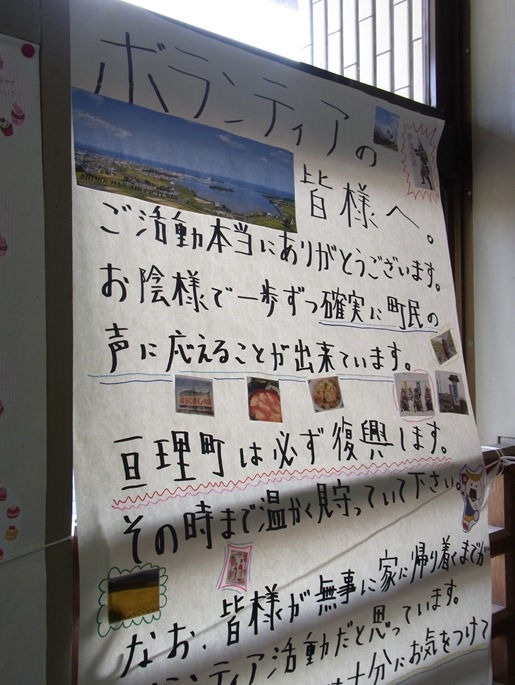 ボランティアの
皆様へ。
ご活動本当にありがとうございます。
お陰様で一歩ずつ確実に町民の
声に応えることが出来ています。
亘理町は必ず復興します。
その時まで温かく見守っていて下さい。
なお、皆様が無事に家に帰り着くまでが
ランティア活動だと思っています。
十分にお気をつけて